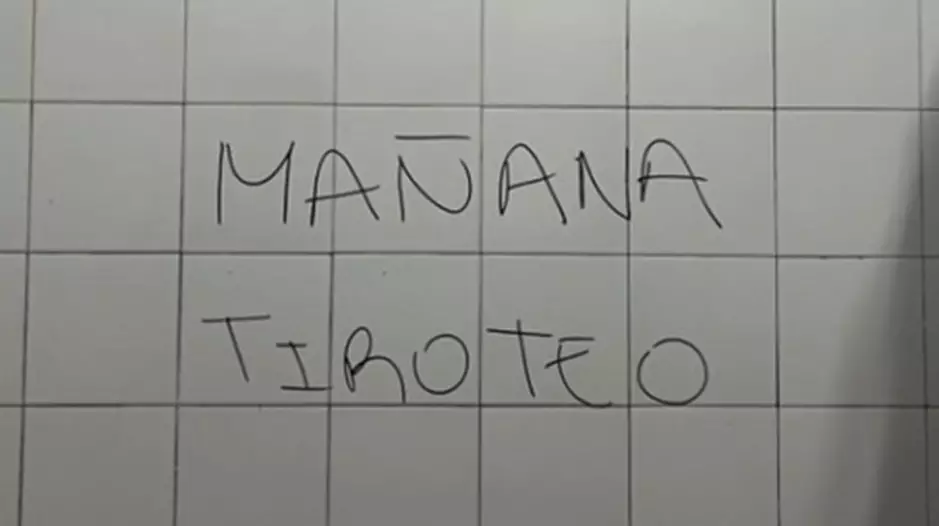 MAÑANA
TIROTEO